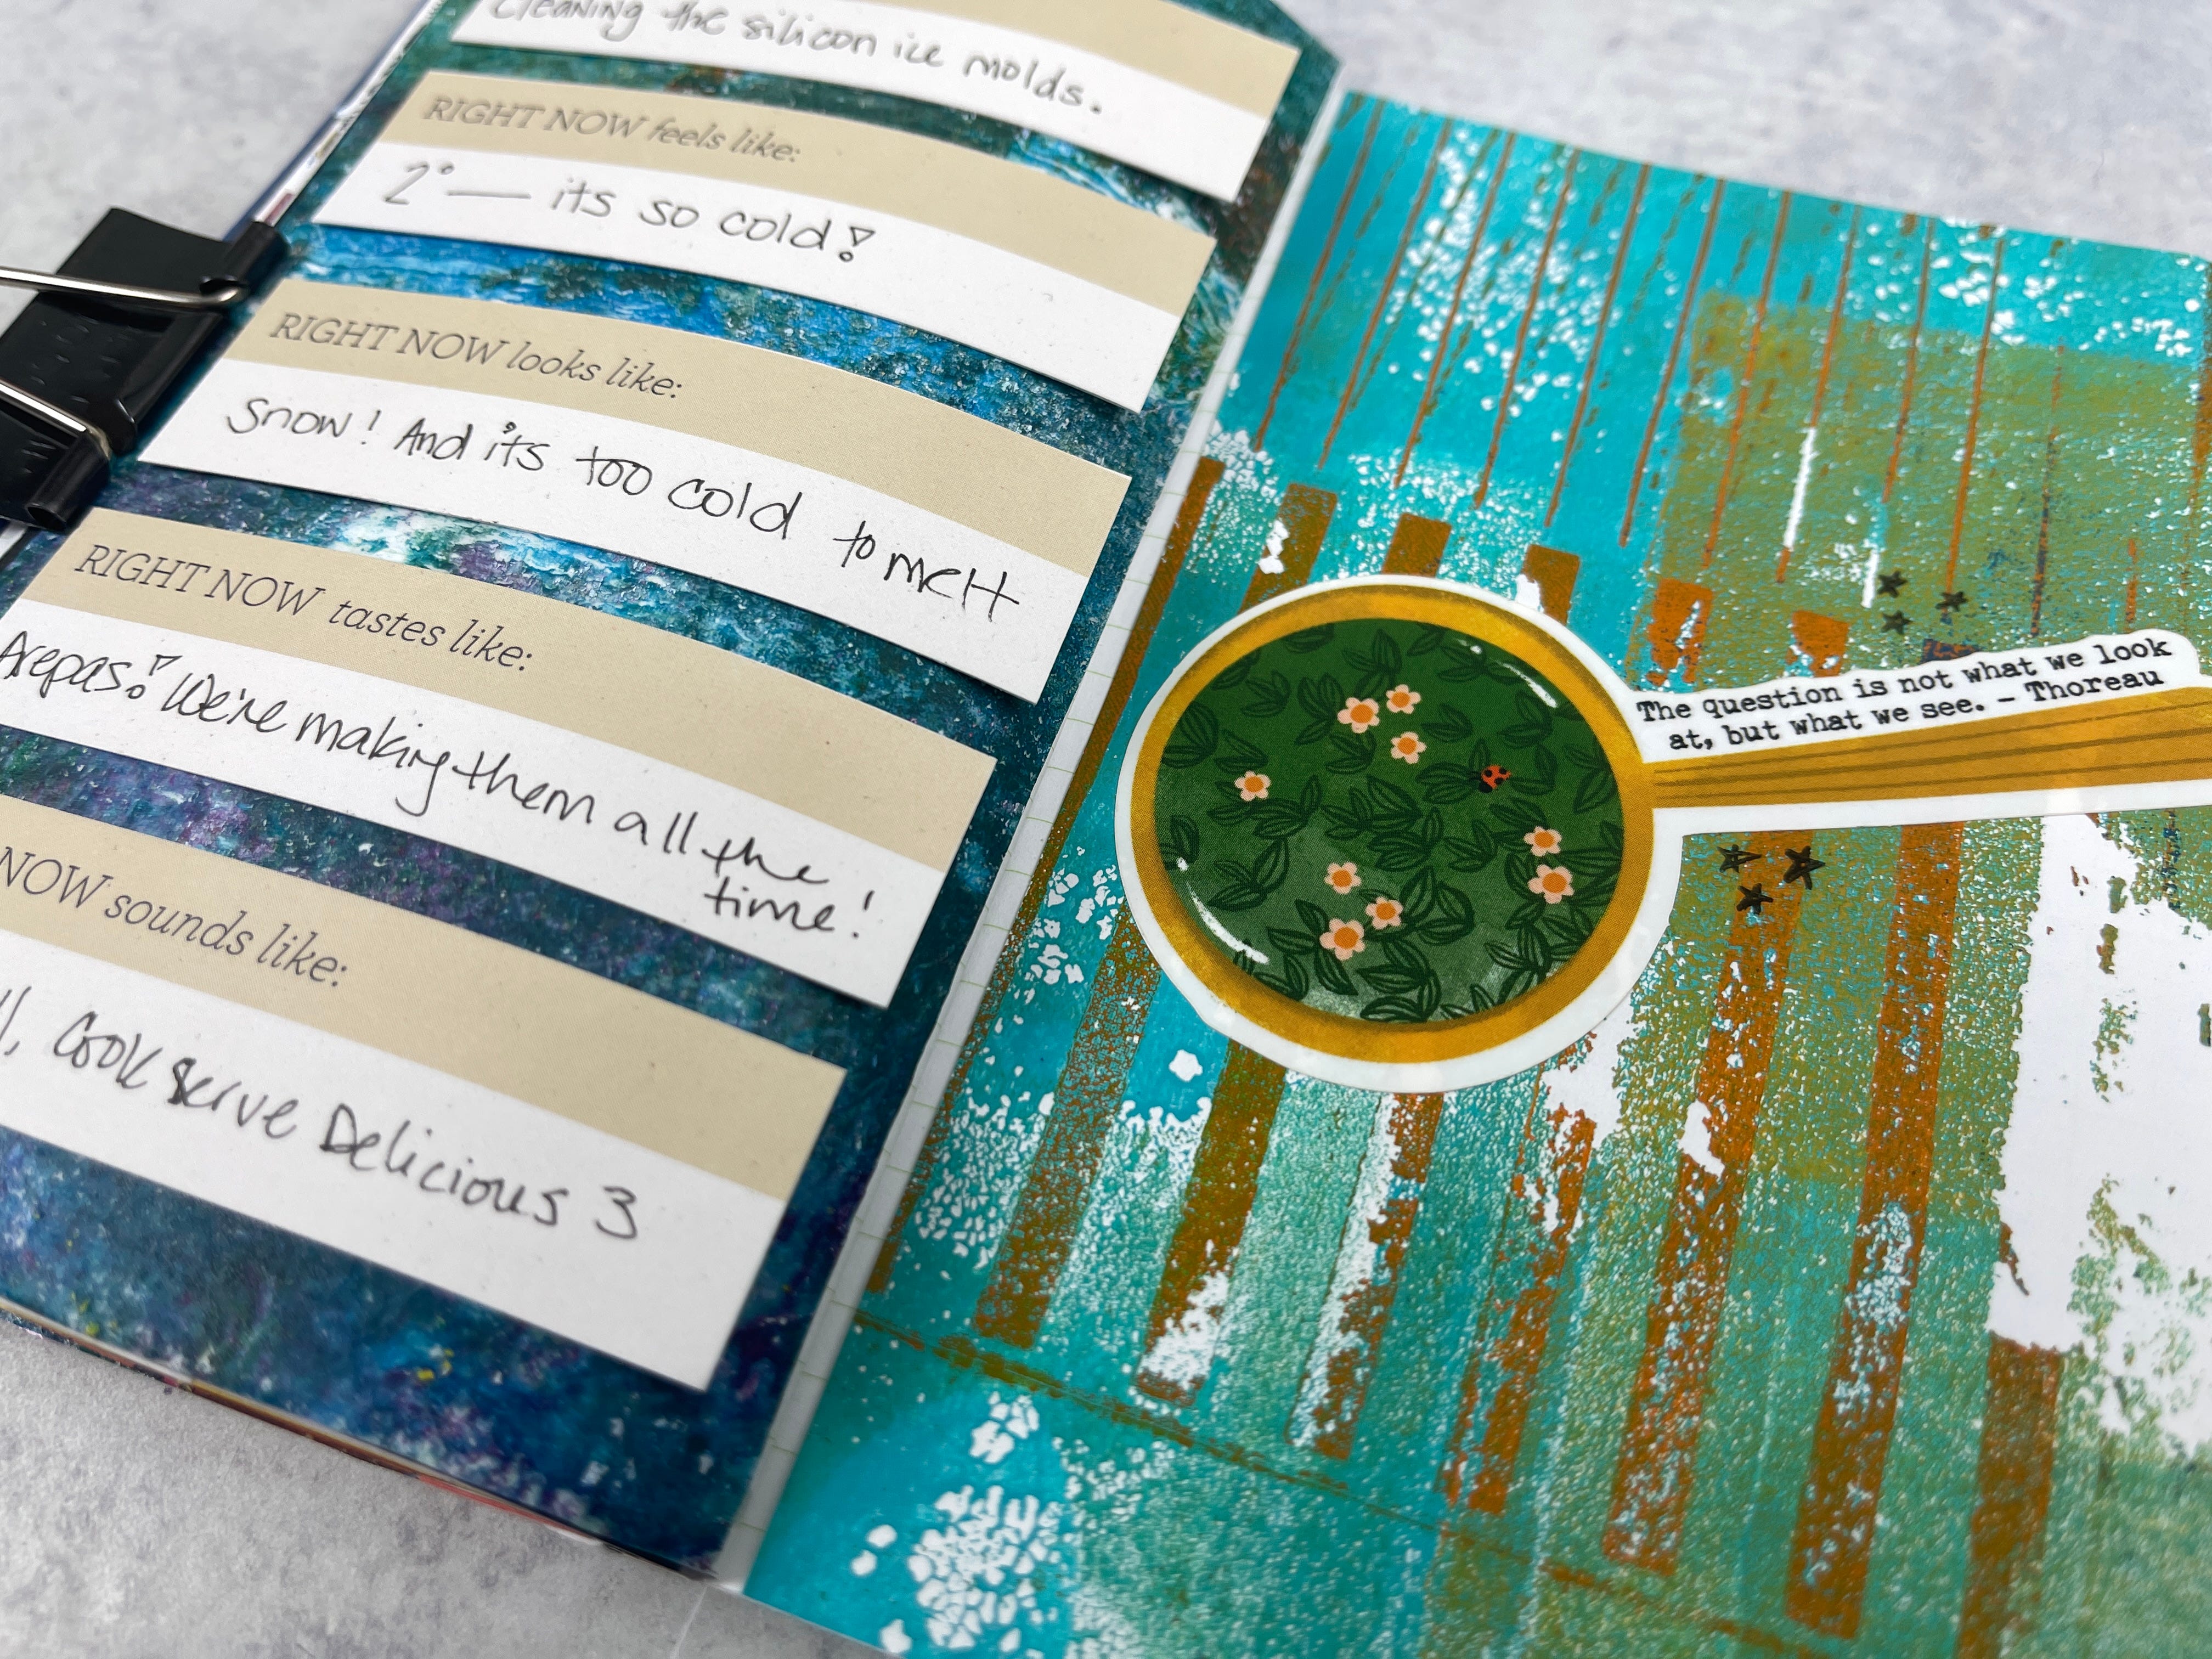 cleaning the silicon ice molds.
RIGHT NOW feels like:
2° — its so cold!
RIGHT NOW looks like:
Snow! And it's too cold to melt
RIGHT NOW tastes like:
Arepas! We're making them all the
time!
NOW sounds like:
Cook Serve Delicious 3
The question is not what we look
at, but what we see. – Thoreau